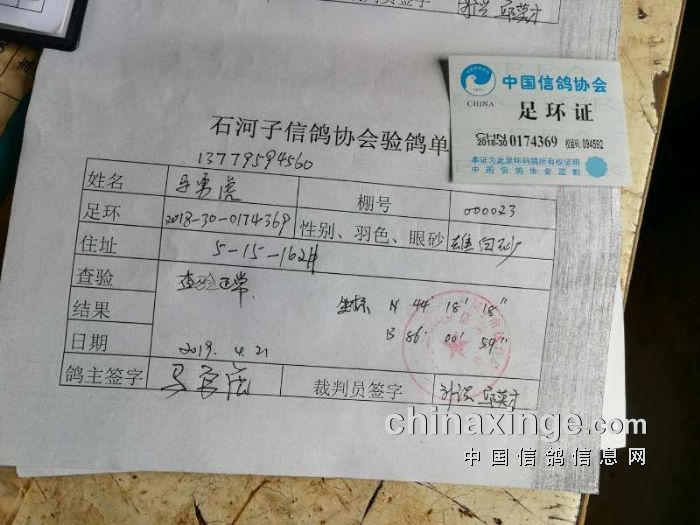 裁判员签字
中国信鸽协会
CHINA
足环证
CHN
2018-30 0174369 校验码:094592
本证为此足环码鸽所有权证明
中国信鸽协会监制
石河子信鸽协会验鸽单
13779594560
姓名 马勇虎 棚号 000023
足环 2018-30-0174369 性别、羽色、眼砂 雄 白 砂
住址 5-15-162#
查验 查验正常
结果 坐标 N 44° 18' 18"
日期 2019.4.21 B 86° 00' 59"
鸽主签字 裁判员签字
chinaxinge.com
中国信鸽信息网